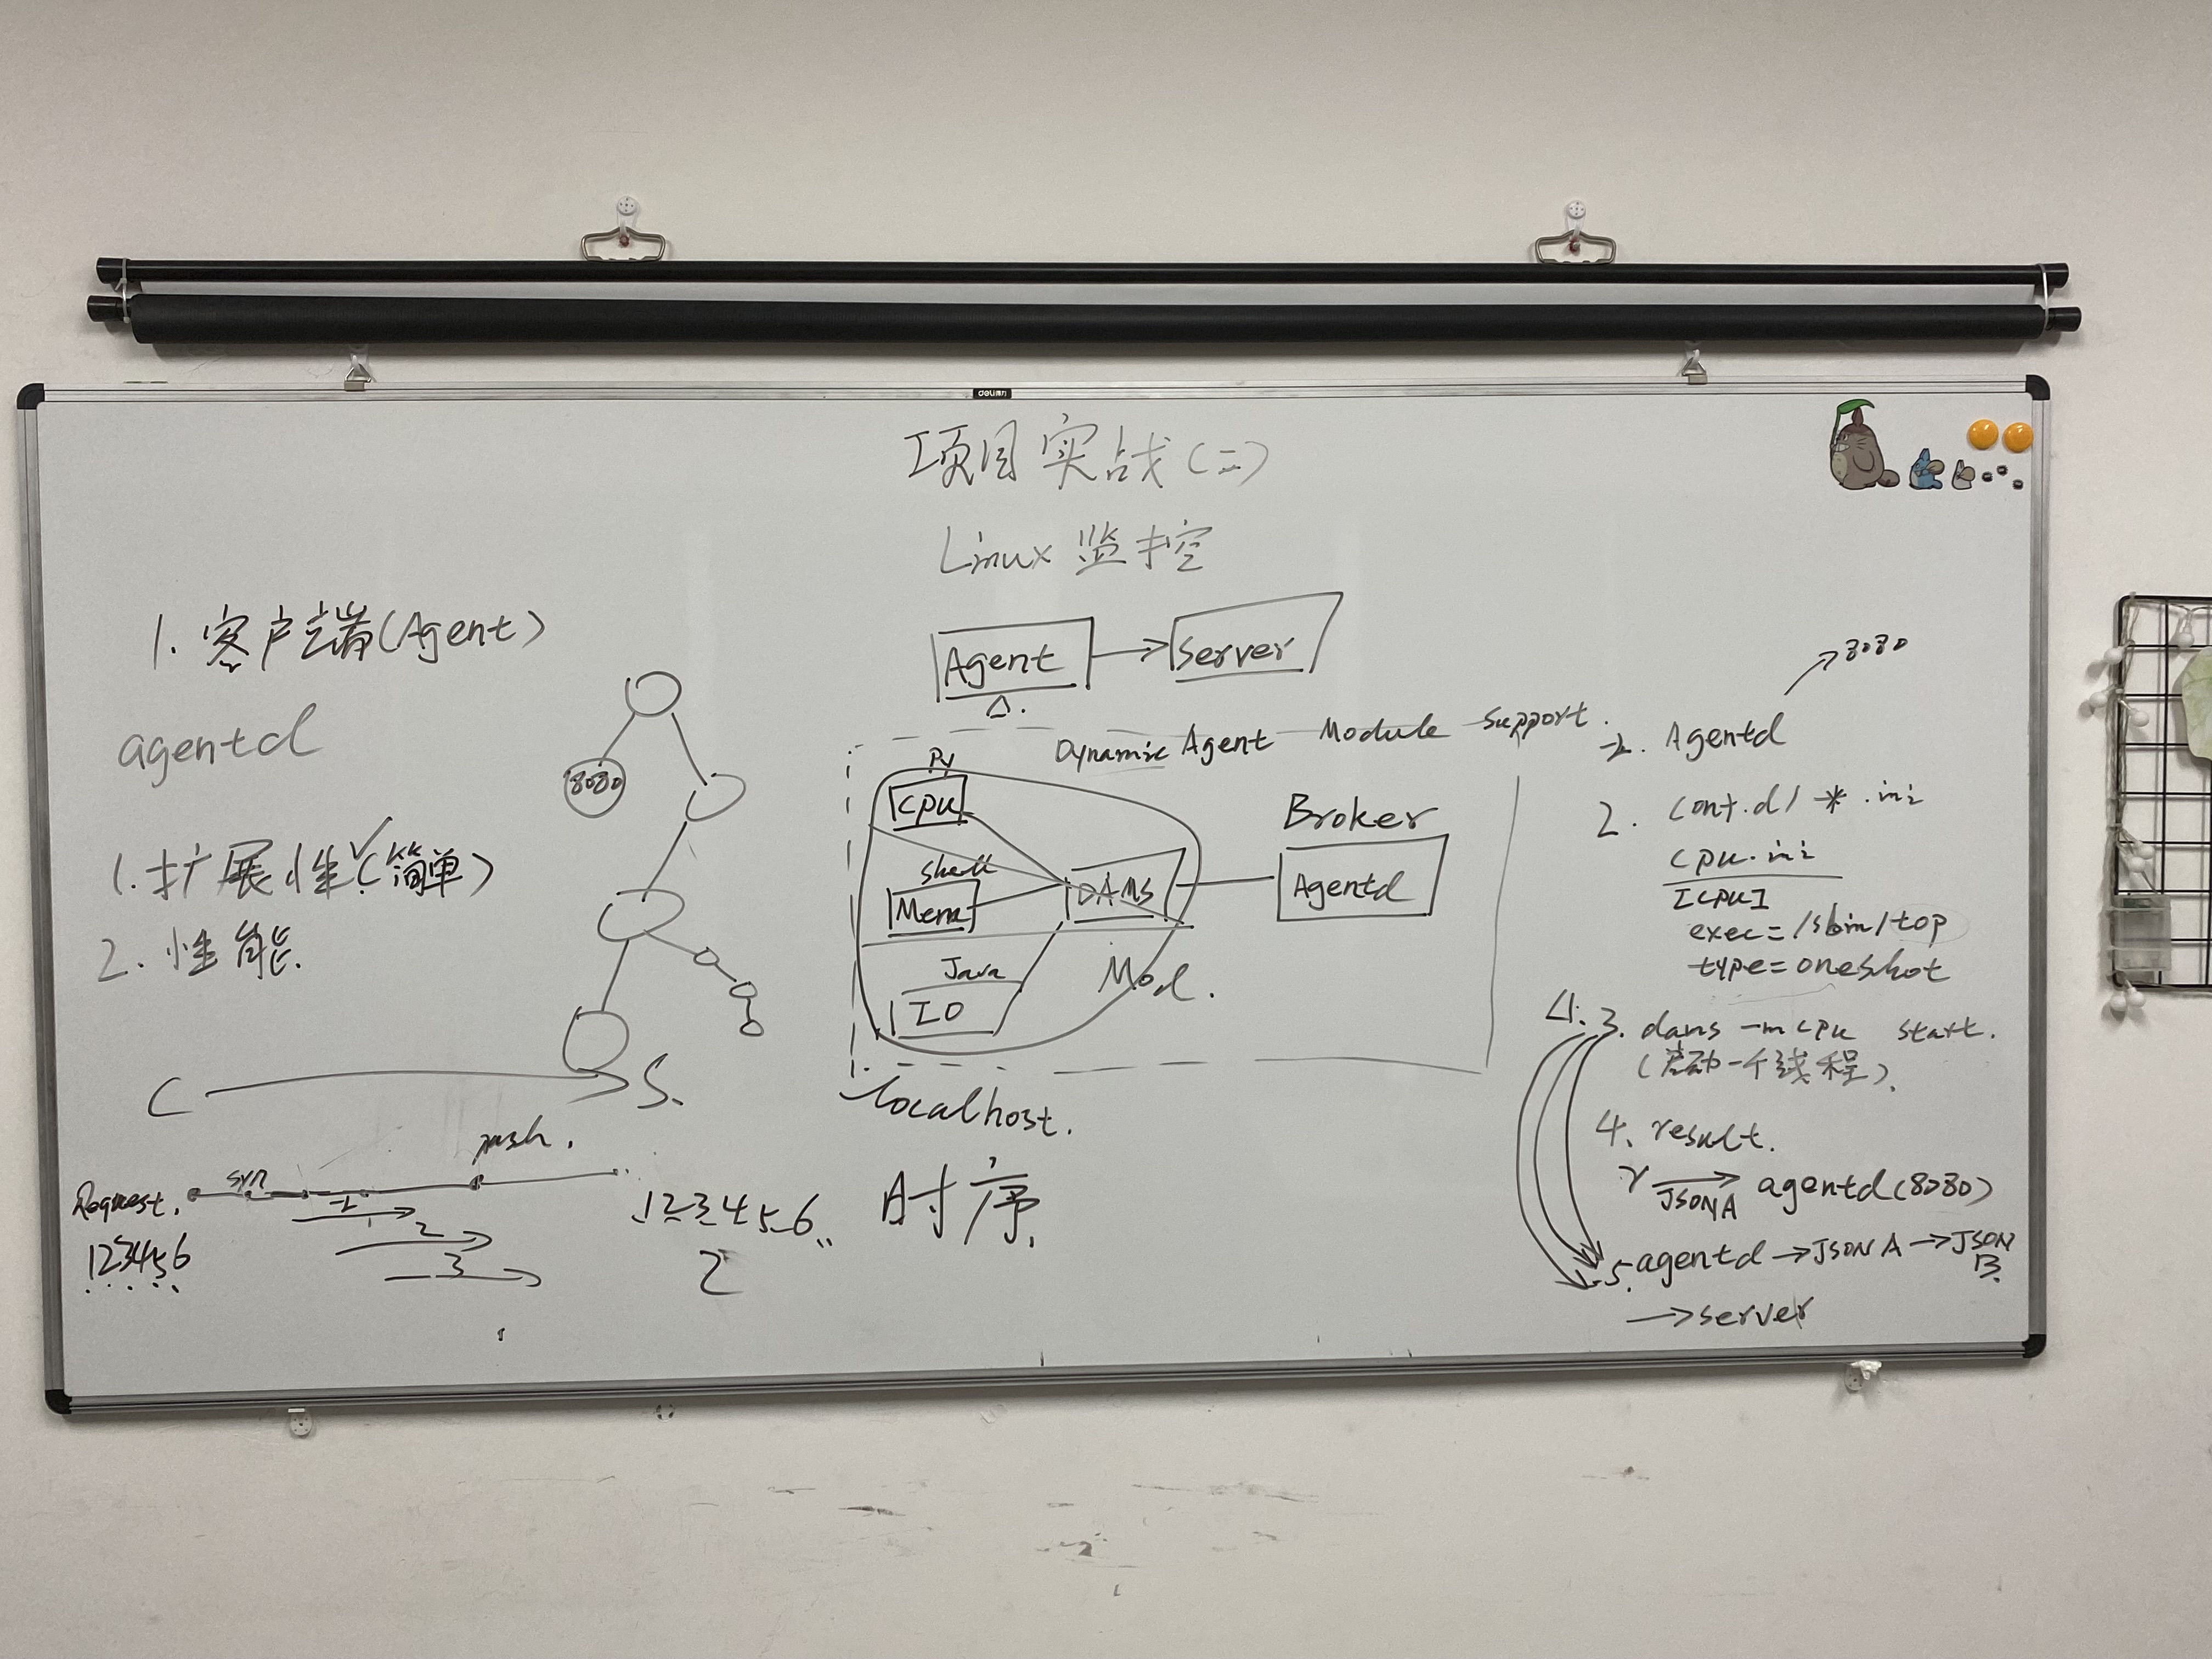 项目实战(二)
Linux 监控
1. 客户端(Agent)
agentd
1. 扩展性(简单)
2. 性能
8080
C
S.
push.
Request.
syn
1
2
3
123456
1 2 3 4 5 6
2
时序
Agent
Server
Dynamic Agent Module Support.
Py
CPU
Shell
Mem
Java
IO
DAMS
Mod.
Broker
Agentd
localhost.
8080
1. Agentd
2. conf.d/*.ini
cpu.ini
[CPU]
exec=/sbin/top
type=oneshot
3. dams -m cpu start.
(启动一个线程).
4. result.
JSON A
agentd(8080)
5. agentd → JSON A → JSON B
→ server